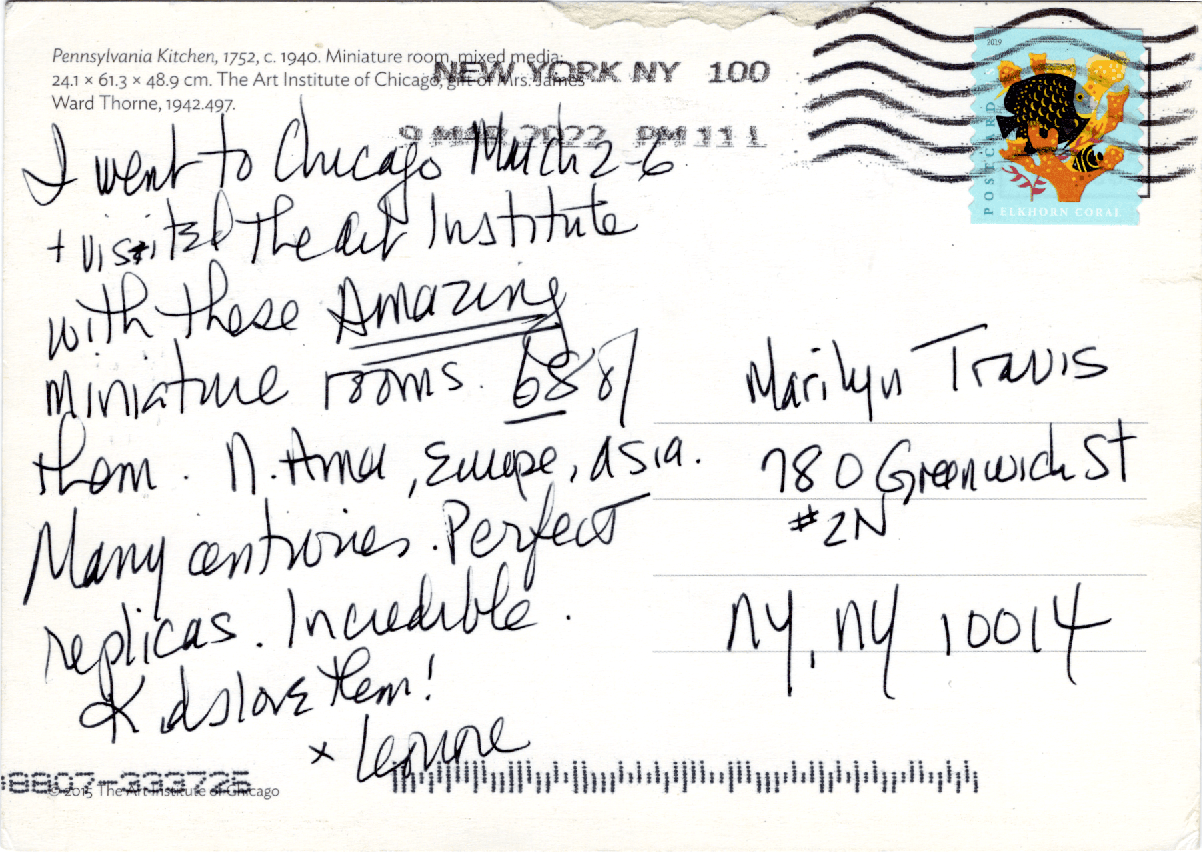 Pennsylvania Kitchen, 1752, c. 1940. Miniature room, mixed media;
24.1 × 61.3 × 48.9 cm. The Art Institute of Chicago, gift of Mrs. James
Ward Thorne, 1942.497.
NEW YORK NY 100
9 MAR 2022 PM 11 L
2019
POSTCARD
ELKHORN CORAL
I went to Chicago March 2-6
+ visited the Art Institute
with these Amazing
miniature rooms. 68 of
them. N. Amer, Europe, Asia.
Many centuries. Perfect
replicas. Incredible.
Kids love them!
x Lenore
Marilyn Travis
780 Greenwich St
#2N
NY, NY 10014
8807-333725
© 2015 The Art Institute of Chicago